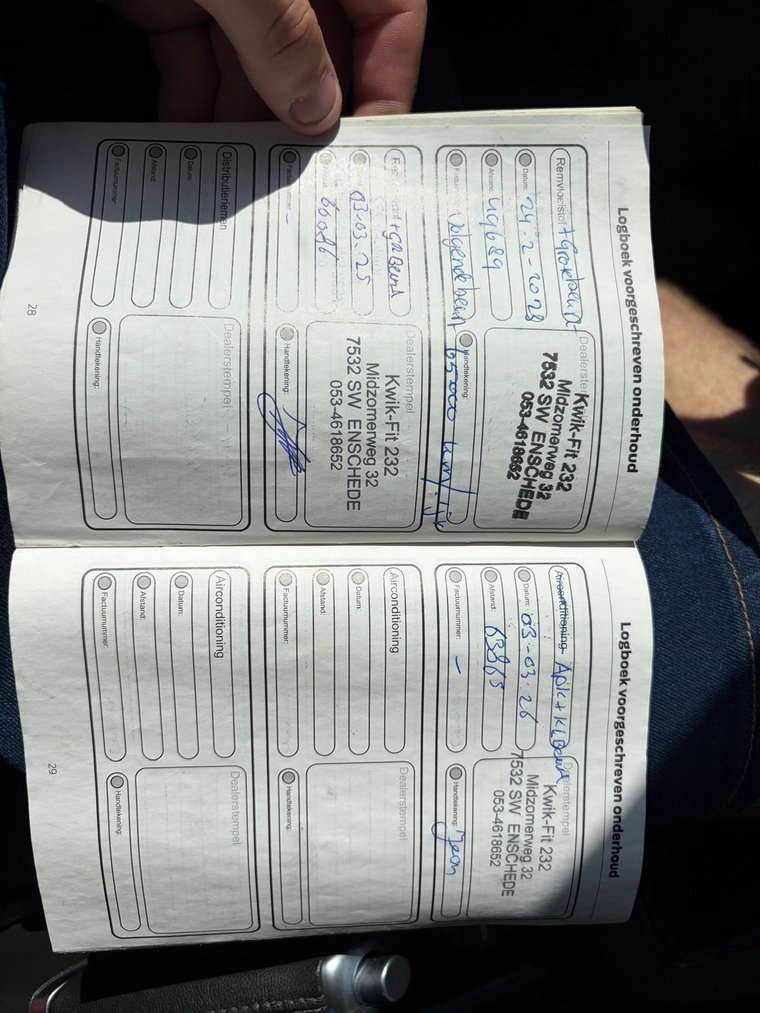 Logboek voorgeschreven onderhoud
Remvloeistof + Grote beurt
Datum: 24-2-2023
Afstand: 49689
Factuurnummer: Volgende beurt 65000 km/
Dealerstempel
Kwik-Fit 232
Midzomerweg 32
7532 SW ENSCHEDE
053-4618652
Handtekening:
+ GR Beurt
03-03-25
60086
Factuurnummer: -
Dealerstempel
Kwik-Fit 232
Midzomerweg 32
7532 SW ENSCHEDE
053-4618652
Handtekening:
Distributieriemen
Datum:
Afstand:
Factuurnummer:
Dealerstempel
Handtekening:
28
Logboek voorgeschreven onderhoud
Airconditioning Apk + Kl Beurt
Datum: 03-03-26
Afstand: 63865
Factuurnummer: -
Dealerstempel
Kwik-Fit 232
Midzomerweg 32
7532 SW ENSCHEDE
053-4618652
Handtekening:
Airconditioning
Datum:
Afstand:
Factuurnummer:
Dealerstempel
Handtekening:
Airconditioning
Datum:
Afstand:
Factuurnummer:
Dealerstempel
Handtekening:
29